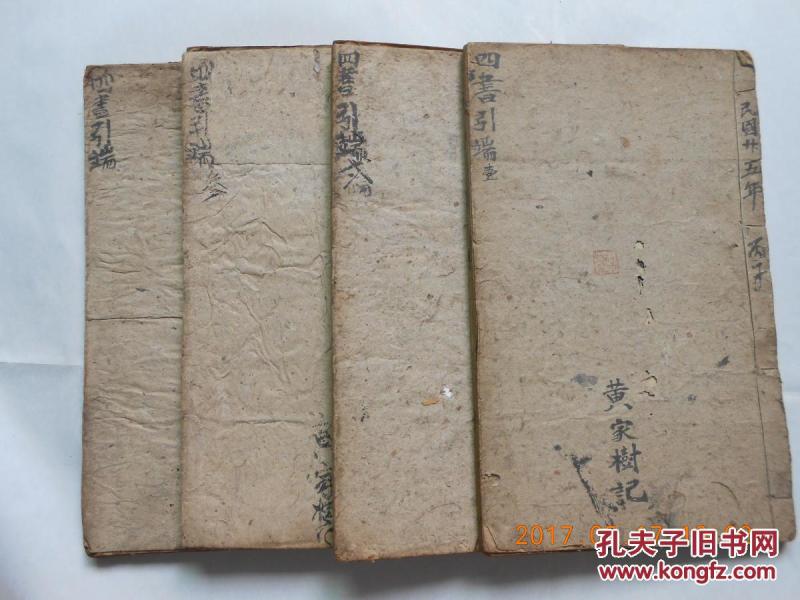 四書引端
四書引端叁
四書引端弍
四書引端壹
民國廿五年 丙子
黄家樹記
2017
孔夫子旧书网
www.kongfz.com